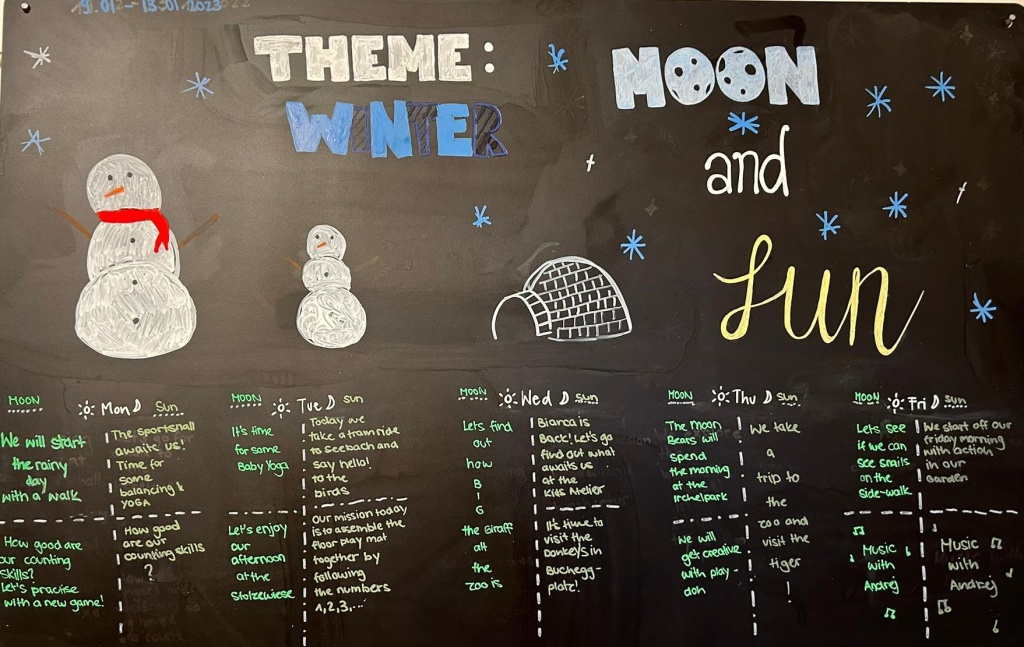 THEME:
WINTER
MOON
and
Sun
MOON
Mon
Sun
We will start
the rainy
day
with a walk
The sportshall
awaits us!
Time for
some
balancing &
YOGA
How good are
our counting
skills?
Let's practise
with a new game!
How good
are our
counting skills
?
MOON
Tue
Sun
It's time
for some
Baby Yoga
Today we
take a tramride
to Seebach and
say hello!
to the
birds
Let's enjoy
our
afternoon
at the
Stolzewiese
Our mission today
is to assemble the
floor play mat
together by
following
the numbers
1,2,3,...
MOON
Wed
Sun
Lets find
out
how
B
I
G
the Giraff
at
the
ZOO is
Bianca is
Back! Let's go
find out what
awaits us
at the
Kids Atelier
It's time to
visit the
Donkeys in
Buchegg-
platz!
MOON
Thu
Sun
The Moon
Bears will
spend
the morning
at the
Irchelpark
We will
get creative
with play-
doh
We take
a
trip to
the
zoo and
visit the
tiger
!
MOON
Fri
Sun
Lets see
if we can
see snails
on the
side-walk
We start off our
friday morning
with action
in our
Garden
Music
with
Andrej
Music
with
Andrej